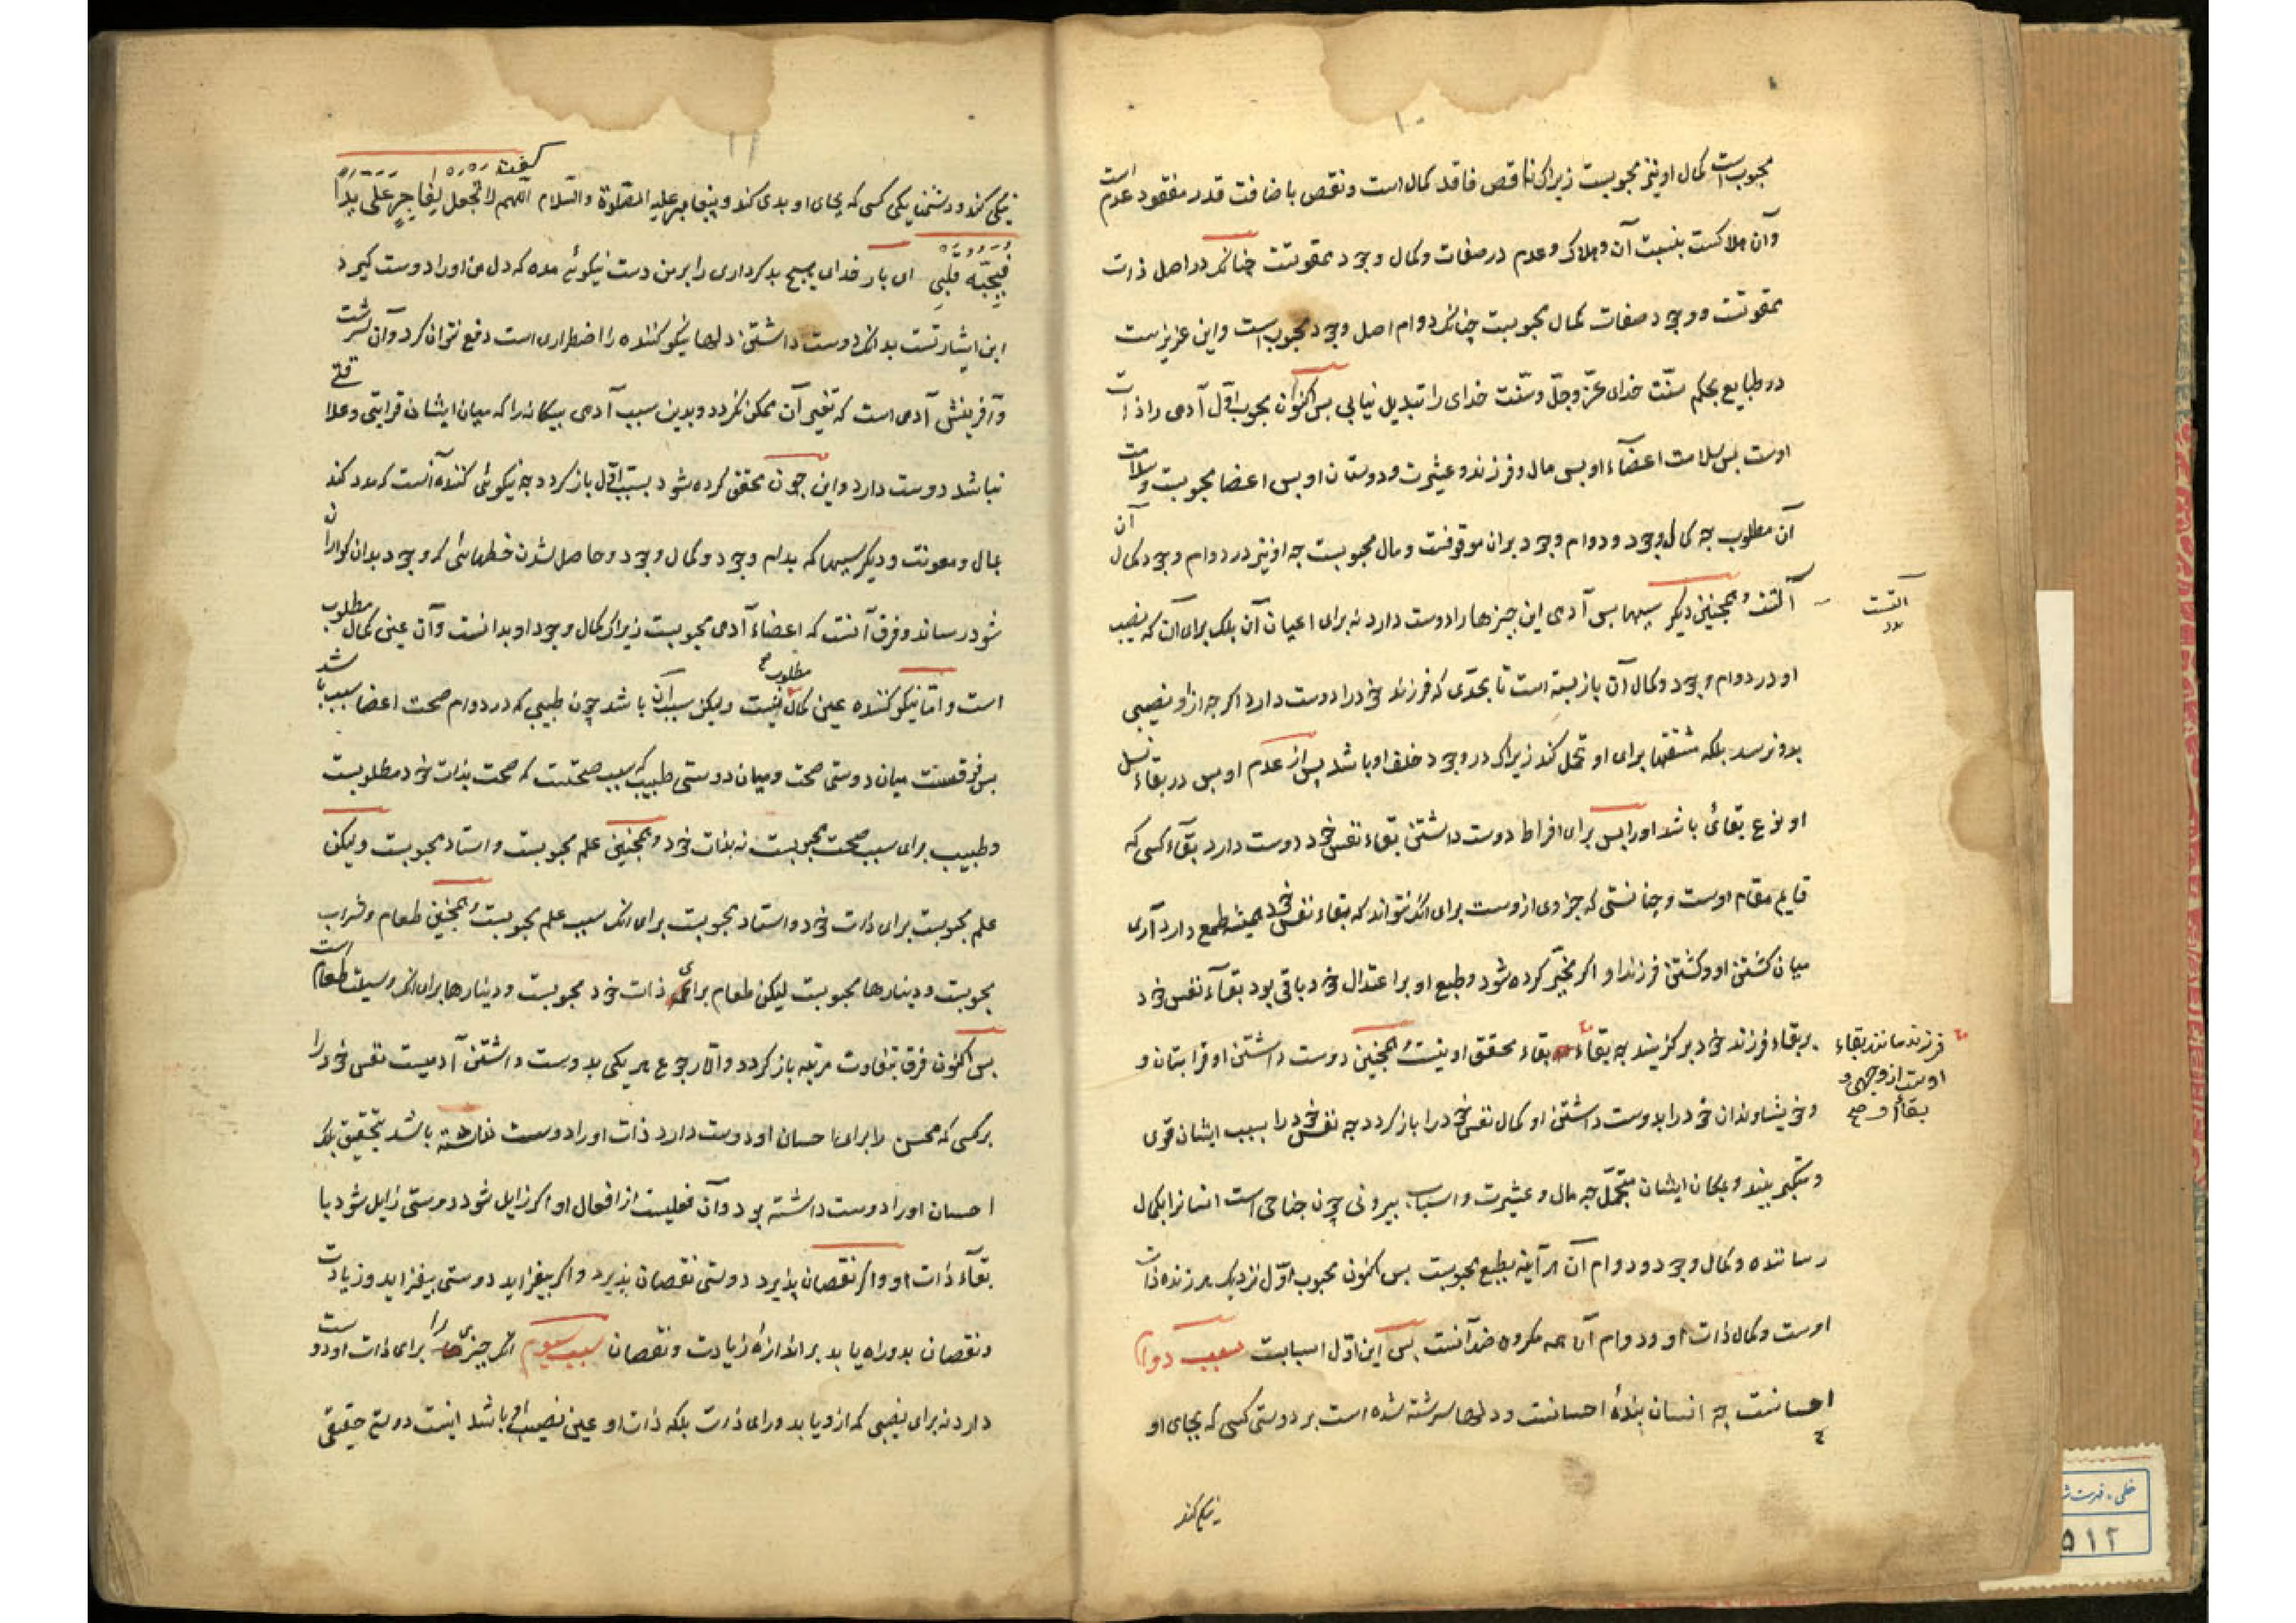 ۱۰
مجوبست کمال او نیز مجوبست زیراک ناقص فاقد کمال است و نقص باضافت قدر مفقود عدم است
وآن هلاکست بنسبت آن و هلاک و عدم در صفات و کمال وجود ممقوتست چنانک در اصل ذرات
ممقوتست و وجود صفات کمال محبوبست چنانک دوام اصل وجود محبوب است و این عزیزیست
در طبایع بحکم سنّت خدای عزّ وجلّ و سنّت خدای را تبدیل نیابی بس اکنون محبوب اوّل آدمی را ذات
اوست بس سلامت اعضاء او بس مال و فرزند و عشیرت و دوستان او بس اعضا محبوبست و سلامت
آن مطلوب جه کمال وجود و دوام وجود بران موقوفست و مال محبوبست جه او نیز در دوام وجود و کمال آن
آلتست و همجنین دیکر سببها بس آدمی این جیزها را دوست دارد نه برای اعیان آن بلک برای آن که نصیب
آلتست
او در دوام وجود و کمال آن بازبسته است تا بحدّی که فرزند خود را دوست دارد اکر جه ازو نصیبی
بدو نرسد بلکه مشقتها برای او تحمل کند زیراک در وجود خلف او باشد بس از عدم او بس در بقاء نسل
او نوع بقائی باشد او را بس برای افراط دوست داشتن بقاء نفس خود دوست دارد بقآء کسی که
قایم مقام اوست و جنانستی که جزوی ازوست برای انک نتواند که بقاء نفس خود همیشه طمع دارد آری
میان کشتن او و کشتن فرزند او اکر مخیّر کرده شود و طبع او بر اعتدال خود باقی بود بقآء نفس خود
بر بقاء فرزند خود برکزیند جه بقاء بقاء محقق او نیست و همجنین دوست داشتن او قرابتان و
فرزند مانند بقاء
اوست از وجهی و
بقاء او صح
و خویشاوندان خود را بدوست داشتن او کمال نفس خود را باز کردد جه نفس خود را بسبب ایشان قوی
و متکبر بیند و بمکان ایشان متجمّل جه مال و عشیرت و اسباب بیرونی چون جناحی است انسانرا بکمال
رساننده و کمال وجود و دوام آن هر آینه بطبع محبوبست بس اکنون محبوب اوّل نزدیک هر زنده ذات
اوست و کمال ذات او و دوام آن همه مکروه ضد آنست بس این اوّل اسبابست سبب دوم
احسانست جه انسان بندهٔ احسانست و دلها سرشته شده است بر دوستی کسی که بجای او
نیکی کند
۱۱
نیکی کند و دشمنایکی کسی که بجای او بدی کند و پیغامبر علیه الصّلوة والسّلام گفت اللهم لا تجعل لِفاجرٍ علی یدا
فیُحِبّه قَلبی ای بار خدای هیچ بدکرداری را بر من دست نیکوئی مده که دل من او را دوست کیرد
این اشارتست بدانک دوست داشتن دلها نیکو کننده را اضطراری است دفع نتوان کرد و آن سرشت
و آفرینش آدمی است که تغییر آن ممکن نکردد و بدین سبب آدمی بیکانه را که میان ایشان قرابتی و علاقتی
نباشد دوست دارد و این چون تحقق کرده شود بسبب اوّل باز کردد جه نیکوئی کننده آنست که مدد کند
بمال و معونت و دیکر سببها که بدوام وجود و کمال وجود و حاصل شدن خطهائی که وجود بدان کواران
شود رساند و فرق آنست که اعضاء آدمی محبوبست زیراک کمال وجود او بدانست و آن عین کمال مطلوب
است و امّا نیکو کننده عین کمال مطلوب نیست ولیکن سبب آن باشد چون طبیبی که در دوام صحت اعضا سبب باشد
بس فرقست میان دوستی صحت و میان دوستی طبیب که سبب صحتست که صحت بذات خود مطلوبست
و طبیب برای سبب صحت محبوبست نه بذات خود و همجنین علم محبوبست و استاد محبوبست ولیکن
علم محبوبست برای ذات خود و استاد محبوبست برای انک سبب علم محبوبست و همجنین طعام و شراب
محبوبست و دینارها محبوبست لیکن طعام برای ذات خود محبوبست و دینارها برای انک وسیلت طعام است
بس اکنون فرق بتفاوت مرتبه باز کردد و الّا رجوع هر یکی بدوست داشتن آدمیست نفس خود را
هر کسی که محسن را برای احسان او دوست دارد ذات او را دوست نداشته باشد بتحقیق بلک
احسان او را دوست داشته بود و آن فعلیست از افعال او اکر زایل شود دوستی زایل شود با
بقآء ذات او و اکر نقصان پذیرد دوستی نقصان پذیرد و اکر بیفزاید دوستی بیفزاید و زیادت
و نقصان بدو راه یابد بر اندازهٔ زیادت و نقصان سبب سیوم انک جیزی را برای ذات او دوست
دارد نه برای نصیبی که ازو یابد ورای ذات بلکه ذات او عین نصیب او باشد اینست دوستی حقیقی
خطی، فهرست
۵۱۲